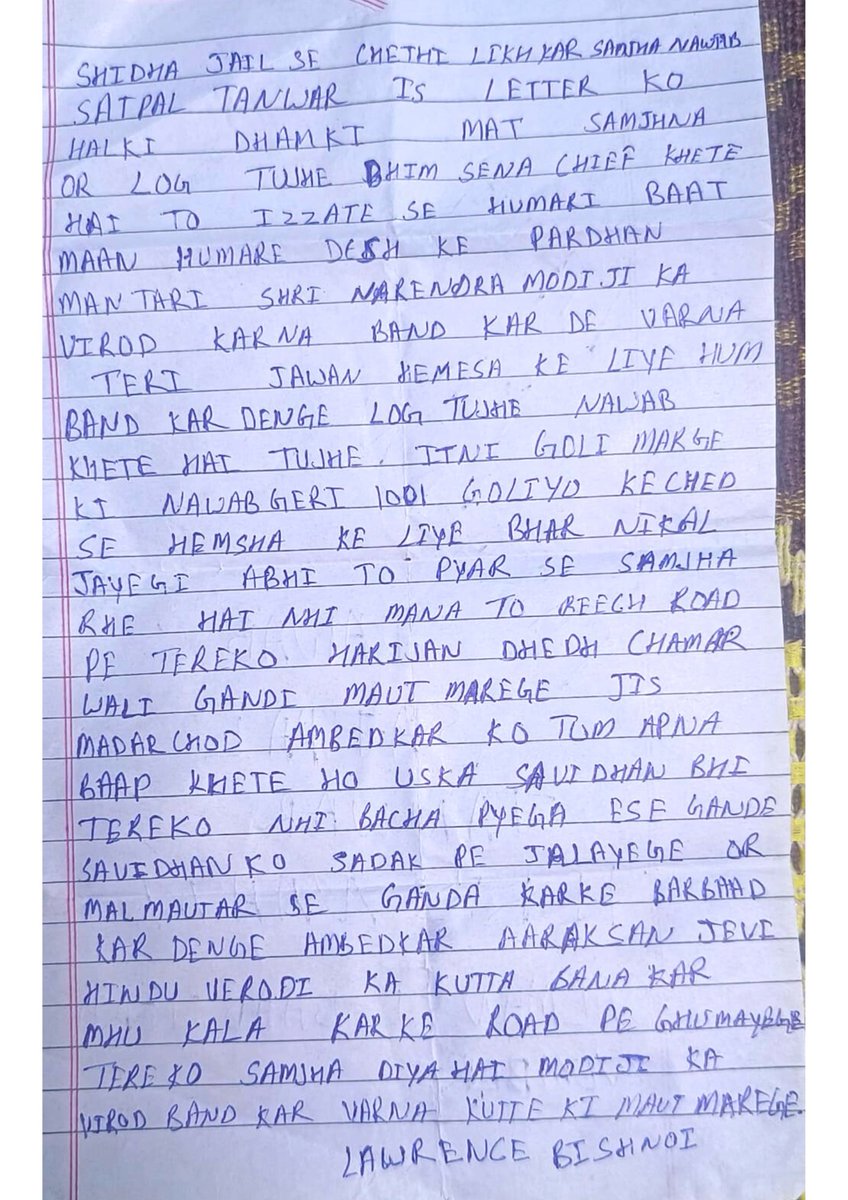 SHIDHA JAIL SE CHETHI LIKH KAR SAMJHA NAWAB
SATPAL TANWAR IS LETTER KO
HALKI DHAMKI MAT SAMJHNA
OR LOG TUJHE BHIM SENA CHIEF KHETE
HAI TO IZZATE SE HUMARI BAAT
MAAN HUMARE DESH KE PARDHAN
MANTARI SHRI NARENDRA MODI JI KA
VIROD KARNA BAND KAR DE VARNA
TERI JAWAN HEMESA KE LIYE HUM
BAND KAR DENGE LOG TUJHE NAWAB
KHETE HAI TUJHE ITNI GOLI MARGE
KI NAWABGERI 1001 GOLIYO KE CHED
SE HEMSHA KE LIYE BHAR NIKAL
JAYEGI ABHI TO PYAR SE SAMJHA
RHE HAI NHI MANA TO BEECH ROAD
PE TEREKO HARIJAN DHEDH CHAMAR
WALI GANDI MAUT MAREGE JIS
MADARCHOD AMBEDKAR KO TUM APNA
BAAP KHETE HO USKA SAVIDHAN BHI
TEREKO NHI BACHA PYEGA ESE GANDE
SAVIDHAN KO SADAK PE JALAYEGE OR
MALMAUTAR SE GANDA KARKE BARBAAD
KAR DENGE AMBEDKAR AARAKSAN JEVI
HINDU VERODI KA KUTTA BANA KAR
MHU KALA KARKE ROAD PE GHUMAYEGE
TEREKO SAMJHA DIYA HAI MODIJI KA
VIROD BAND KAR VARNA KUTTE KI MAUT MAREGE.
LAWRENCE BISHNOI